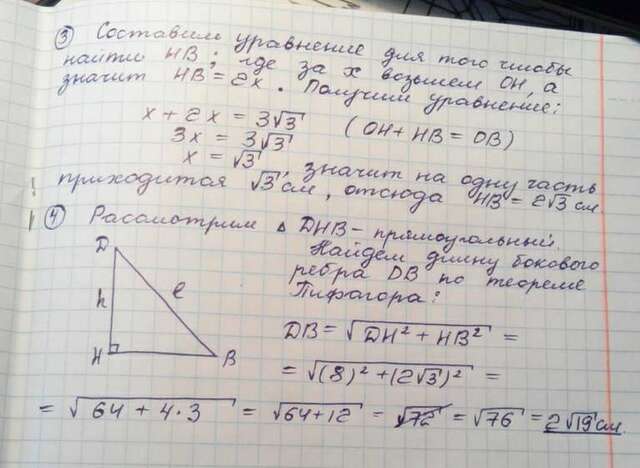 ③ Составим уравнение для того чтобы
найти HB; где за x возьмем OH, а
значит HB = 2x. Получим уравнение:
x + 2x = 3√3
3x = 3√3 (OH + HB = OB)
x = √3, значит на одну часть
приходится √3 см, отсюда HB = 2√3 см.
④ Рассмотрим △ DHB – прямоугольный.
Найдем длину бокового
ребра DB по теореме
Пифагора:
D
h
l
H
B
DB = √DH² + HB² =
= √(8)² + (2√3)² =
= √64 + 4·3 = √64 + 12 = √72 = √76 = 2√19 см.